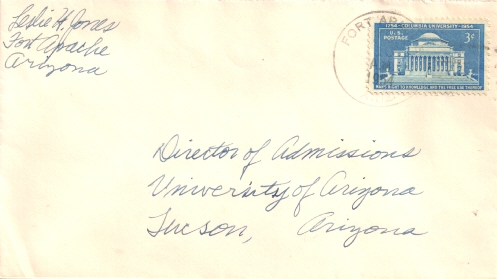 Leslie H. Jones
Fort Apache
Arizona
FORT AP
1754 · COLUMBIA UNIVERSITY · 1954
U.S. POSTAGE 3¢
MAN'S RIGHT TO KNOWLEDGE AND THE FREE USE THEREOF
Director of Admissions
University of Arizona
Tucson, Arizona